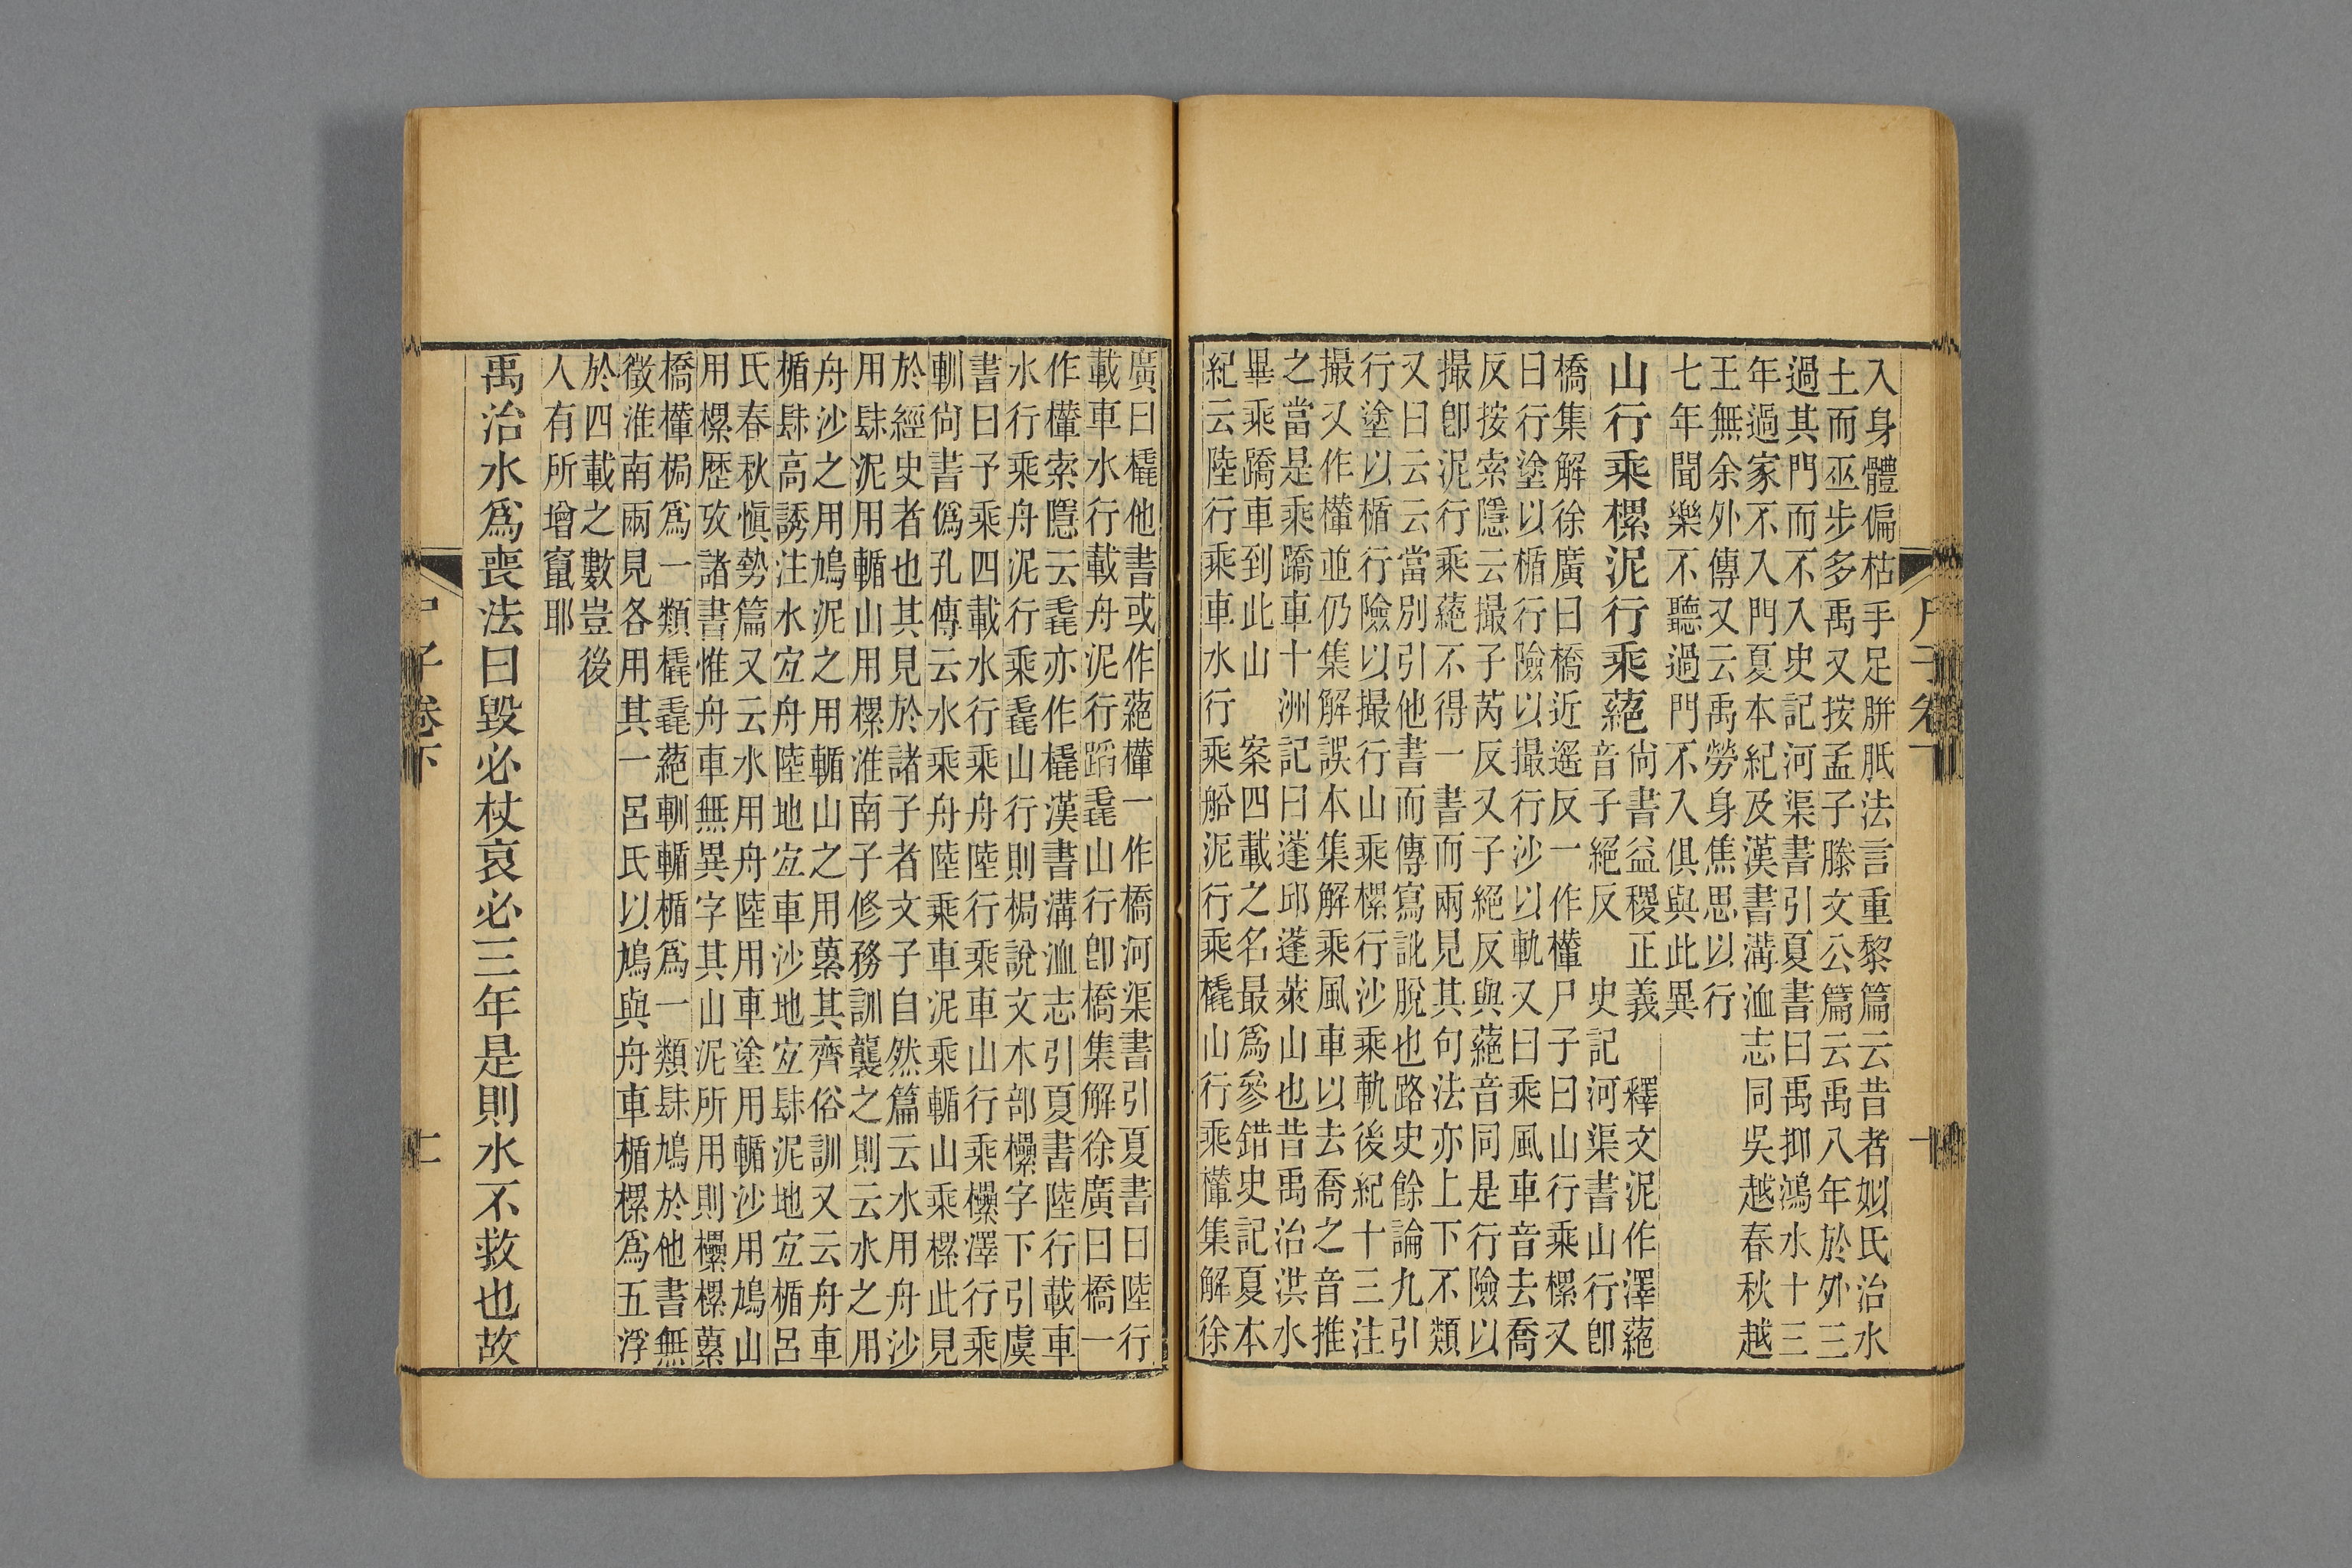 入身體偏枯手足胼胝法言重黎篇云昔者姒氏治水
土而巫步多禹又按孟子滕文公篇云禹八年於外三
過其門而不入史記河渠書引夏書曰禹抑鴻水十三
年過家不入門夏本紀及漢書溝洫志同吳越春秋越
王無余外傳又云禹勞身焦思以行
七年聞樂不聽過門不入俱與此異
山行乘樏泥行乘蕝
尚書益稷正義 釋文泥作澤蕝
音子絕反 史記河渠書山行卽
橋集解徐廣曰橋近遙反一作檋尸子曰山行乘樏又
曰行塗以楯行險以撮行沙以軌又曰乘風車音去喬
反按索隱云撮子芮反又子絕反與蕝音同是行險以
撮卽泥行乘蕝不得一書而兩見其句法亦上下不類
又曰云云當別引他書而傳寫訛脫也路史餘論九引
行塗以楯行險以撮行山乘樏行沙乘軌後紀十三注
撮又作檋並仍集解誤本集解乘風車以去喬之音推
之當是乘蹻車十洲記曰蓬邱蓬萊山也昔禹治洪水
畢乘蹻車到此山 案四載之名最爲參錯史記夏本
紀云陸行乘車水行乘船泥行乘橇山行乘檋集解徐
尸子卷下
廣曰橇他書或作蕝檋一作橋河渠書引夏書曰陸行
載車水行載舟泥行蹈毳山行卽橋集解徐廣曰橋一
作檋索隱云毳亦作橇漢書溝洫志引夏書陸行載車
水行乘舟泥行乘毳山行則梮說文木部欙字下引虞
書曰予乘四載水行乘舟陸行乘車山行乘欙澤行乘
輴尙書僞孔傳云水乘舟陸乘車泥乘輴山乘樏此見
於經史者也其見於諸子者文子自然篇云水用舟沙
用肆泥用輴山用樏淮南子修務訓襲之則云水之用
舟沙之用鳩泥之用輴山之用蔂其齊俗訓又云舟車
楯肆高誘注水宜舟陸地宜車沙地宜肆泥地宜楯呂
氏春秋愼勢篇又云水用舟陸用車塗用輴沙用鳩山
用樏歷攷諸書惟舟車無異字其山泥所用則欙樏蔂
橋檋梮爲一類橇毳蕝輴楯爲一類肆鳩於他書無
徵淮南兩見各用其一呂氏以鳩與舟車楯樏爲五浮
於四載之數豈後
人有所增竄耶
禹治水爲喪法曰毀必杖哀必三年是則水不救也故
子卷下